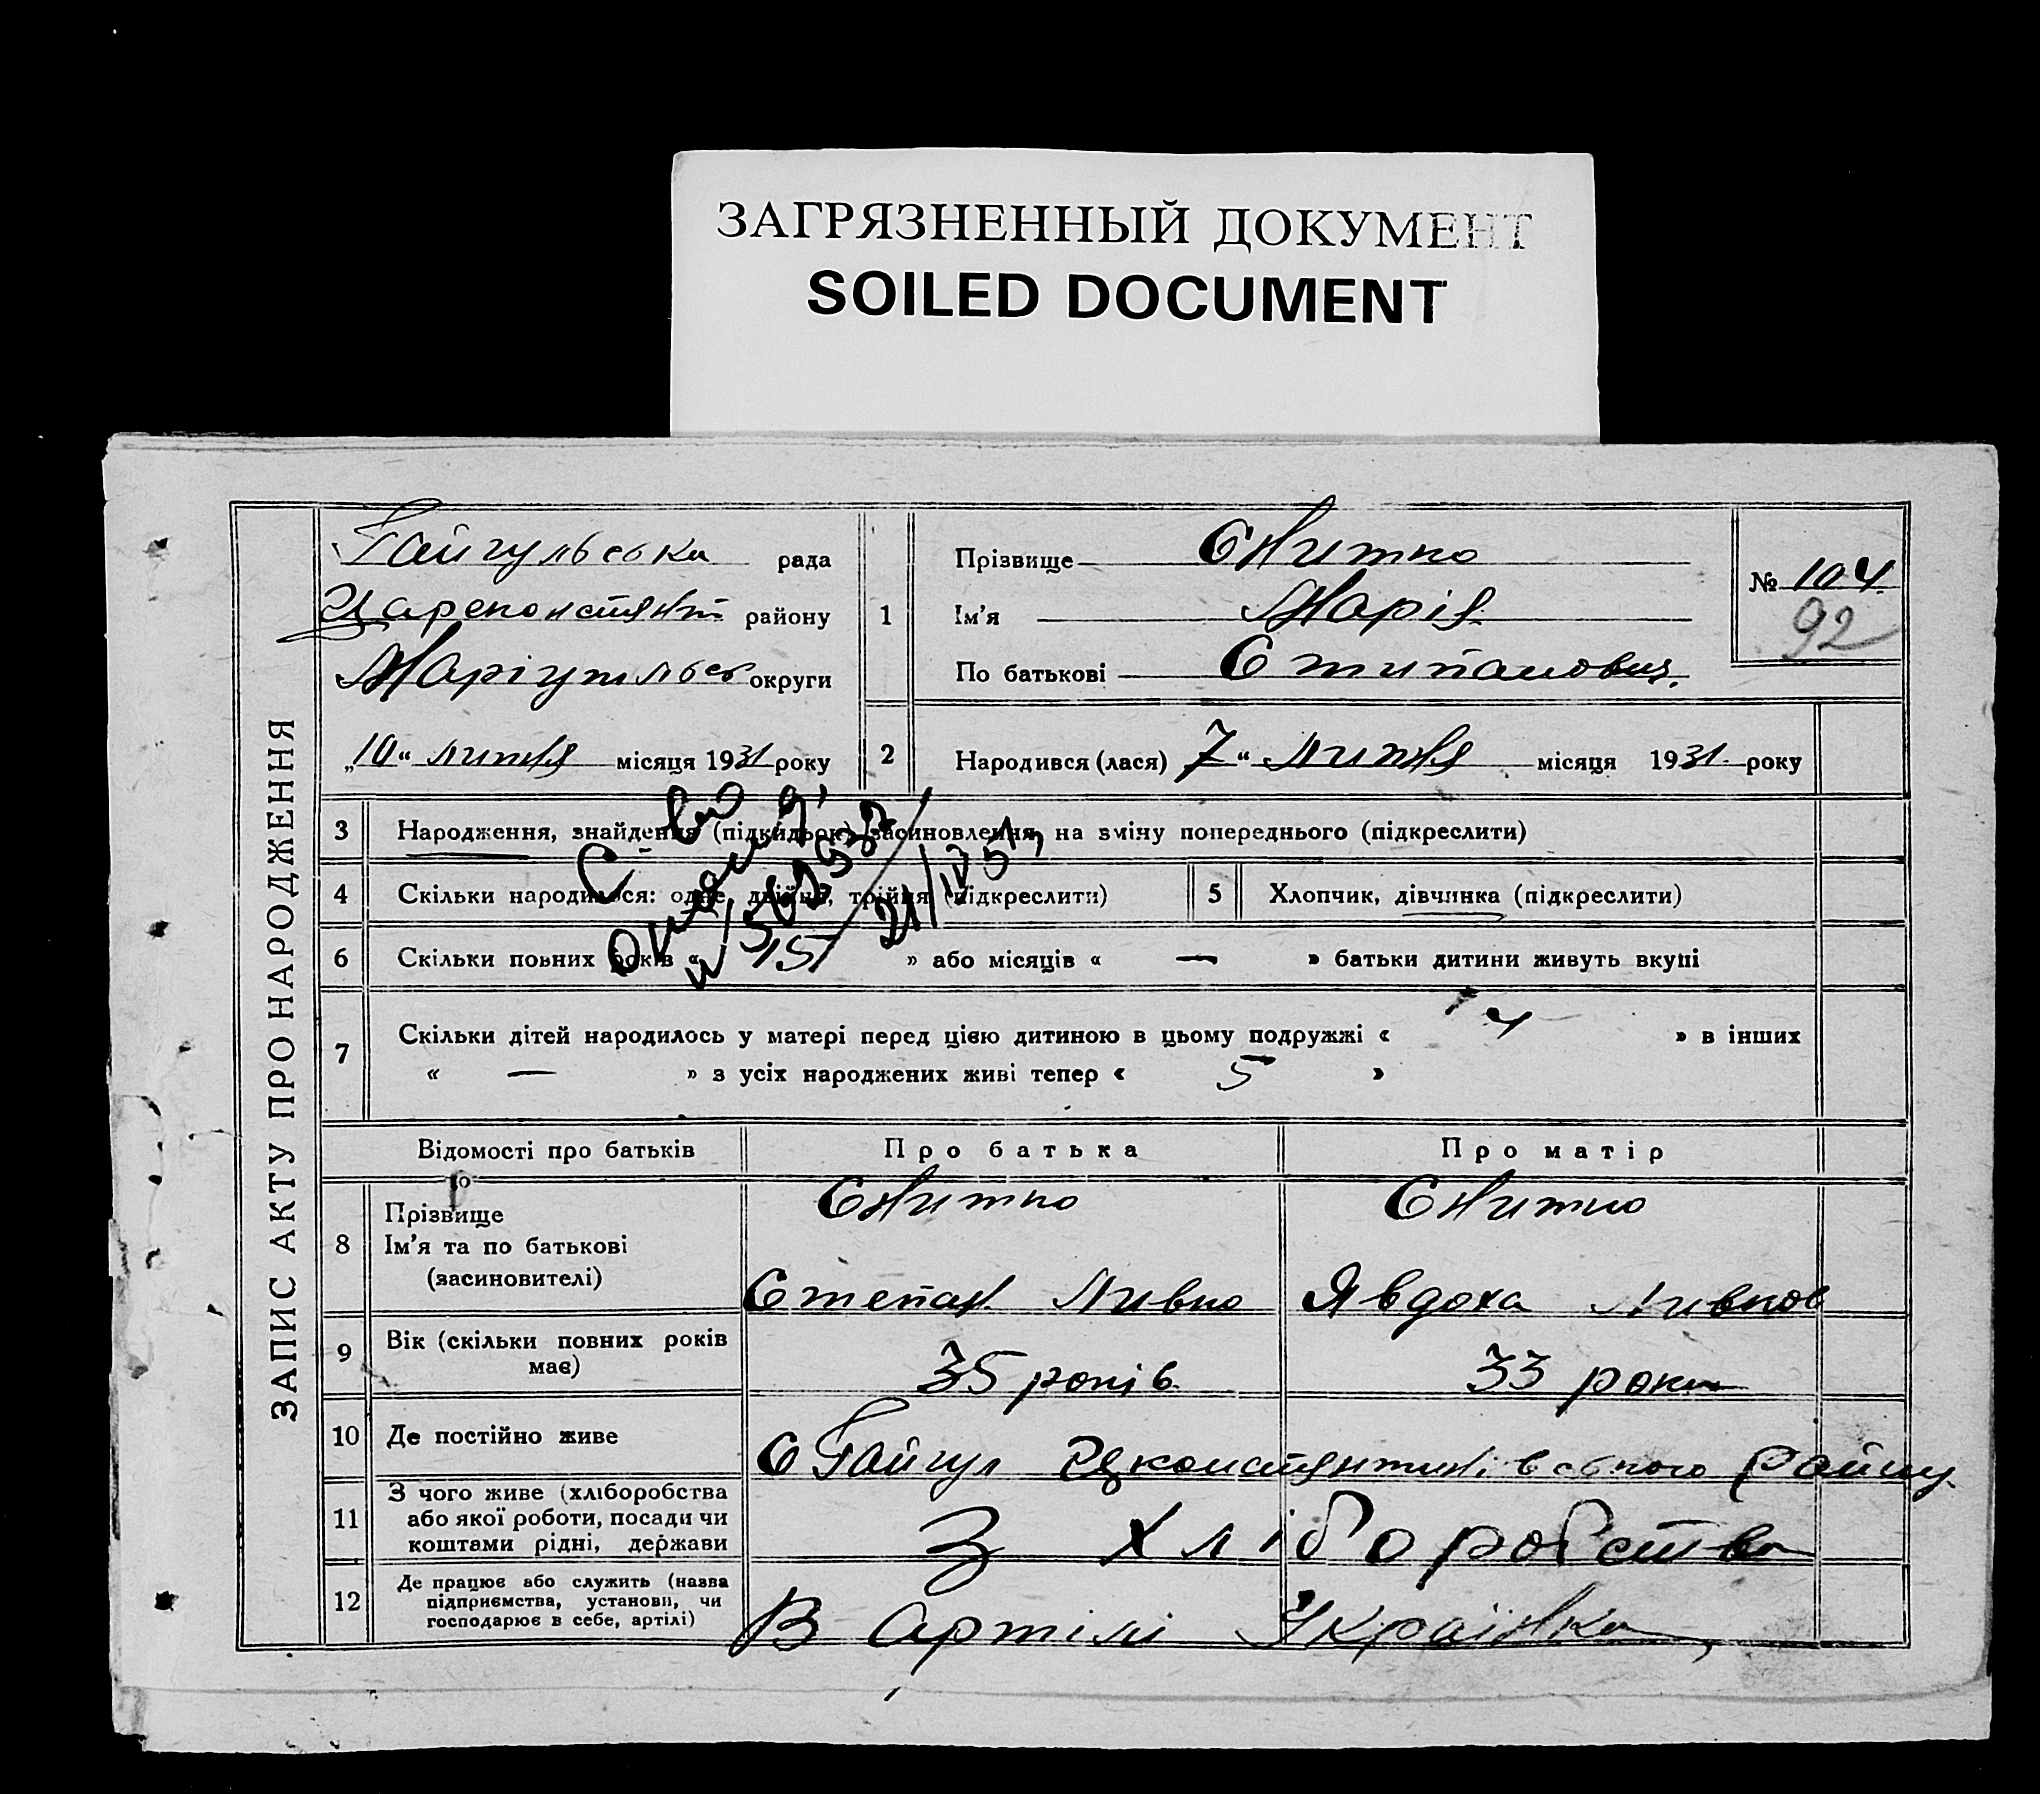 ЗАГРЯЗНЕННЫЙ ДОКУМЕНТ
SOILED DOCUMENT
ЗАПИС АКТУ ПРО НАРОДЖЕННЯ
Гайчульська рада
Цареконстянт району
Маріупільсь округи
„10“ липня місяця 1931 року
1
Прізвище Снитко
Ім'я Марія
По батькові
№ 104
92
2 Народився (лася) 7 “ липня місяця 1931 року
3 Народження, знайдення (підкидьок) засиновлення, на зміну попереднього (підкреслити)
4 Скільки народилося: одне, двійня, трійня (підкреслити)
5 Хлопчик, дівчинка (підкреслити)
6 Скільки повних років « 15 » або місяців « — » батьки дитини живуть вкупі
7 Скільки дітей народилось у матері перед цією дитиною в цьому подружжі « 4 » в інших
« — » з усіх народжених живі тепер « 5 »
21/IV 51
Відомості про батьків Про батька Про матір
8 Прізвище
Ім'я та по батькові
(засиновителі)
Снитко Снитко
Степан Явдоха
9 Вік (скільки повних років має) 35 років 33 роки
10 Де постійно живе с Гайчул Цконстянтинівського району
11 З чого живе (хліборобства
або якої роботи, посади чи
коштами рідні, держави
З хліборобства
12 Де працює або служить (назва
підприємства, установи, чи
господарює в себе, артілі)
В артілі Українка